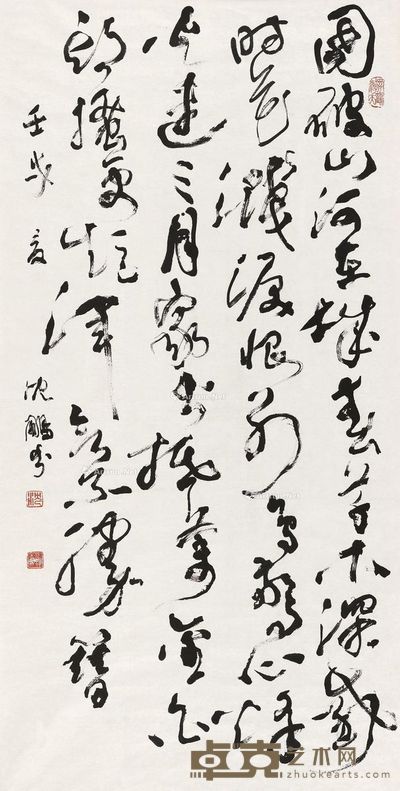 國破山河在城春草木深感
時花濺淚恨別鳥驚心烽
火連三月家書抵萬金白
頭搔更短渾欲不勝簪
壬戌夏 沈鵬書
卓克艺术网
www.zhuokearts.com